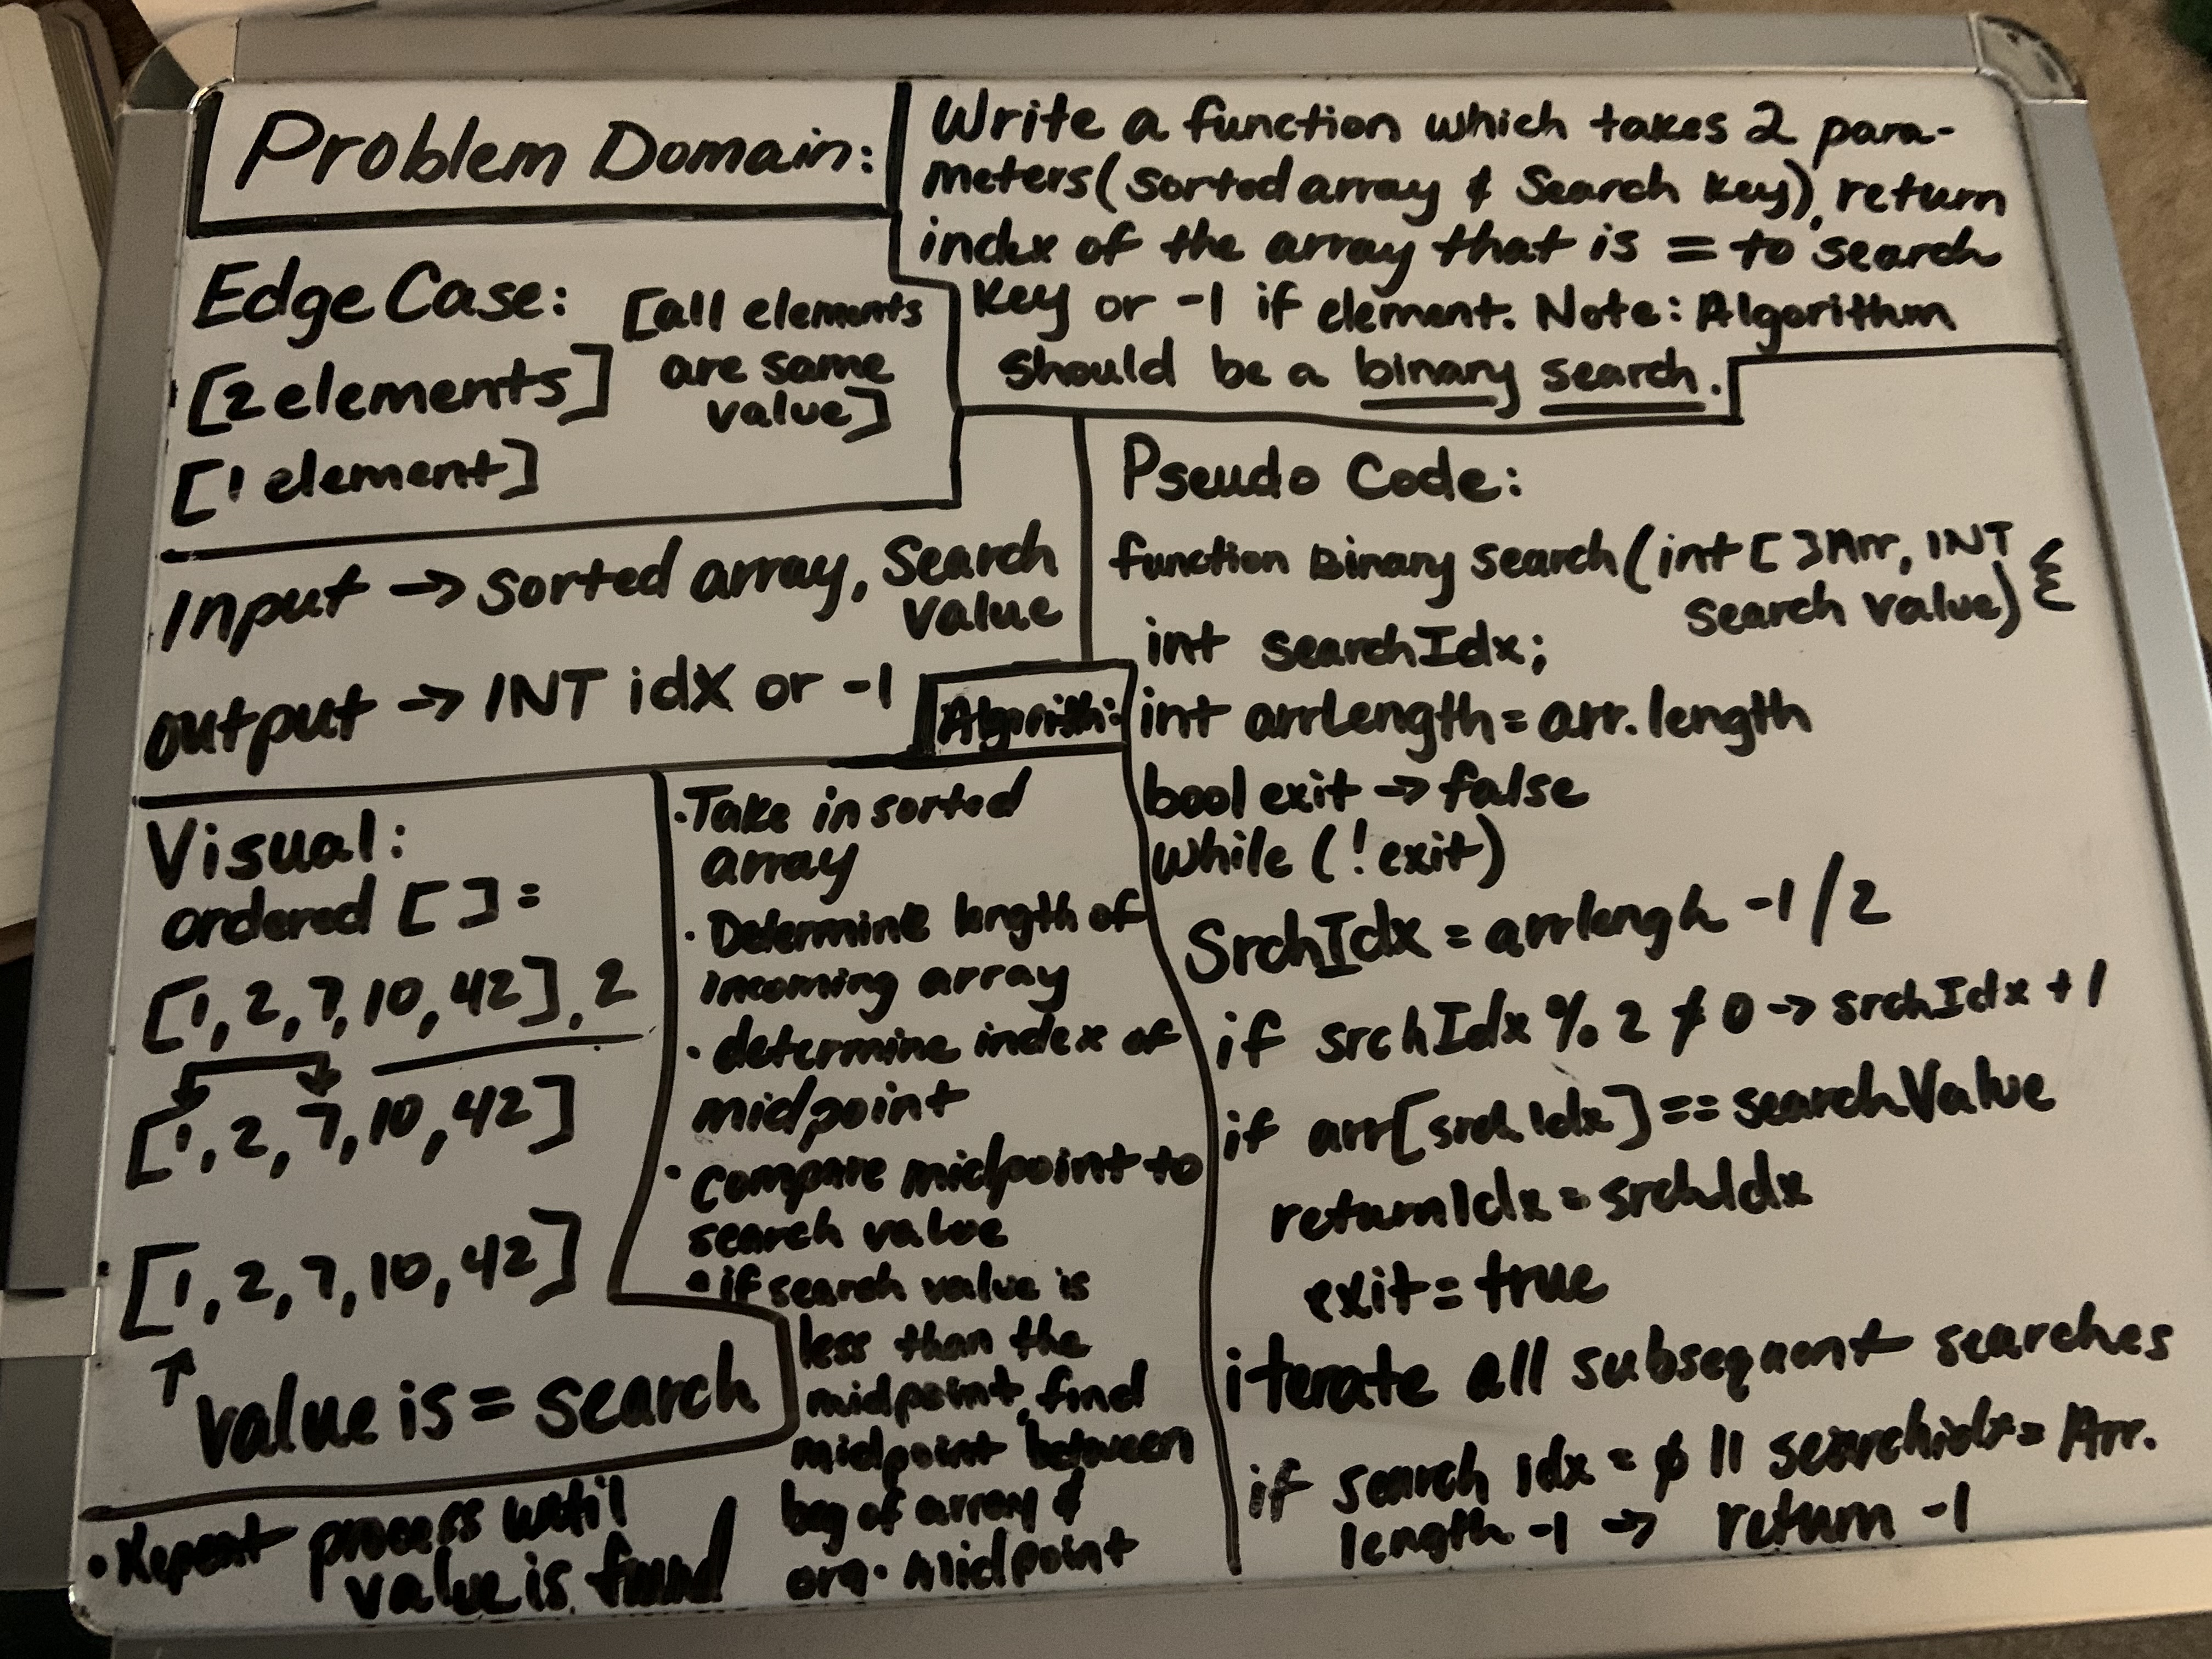 Problem Domain:
Write a function which takes 2 para-
meters (sorted array & Search key), return
index of the array that is = to search
key or -1 if element. Note: Algorithm
should be a binary search.
Edge Case: [all elements
are same
value]
[2 elements]
[1 element]
Input → Sorted array, Search
Value
output → INT idx or -1
Visual:
ordered [ ] =
[1, 2, 7, 10, 42], 2
[1, 2, 7, 10, 42]
[1, 2, 7, 10, 42]
Value is = Search
Algorithm:
• Take in sorted
array
• Determine length of
incoming array
• determine index of
midpoint
• Compare midpoint to
search value
• if search value is
less than the
midpoint, find
midpoint between
beg of array &
org. midpoint
• Repeat process until
value is found
Pseudo Code:
function binary search (int [ ] Arr, INT
search value) {
int searchIdx;
int arrLength = arr.length
bool exit → false
while (!exit)
SrchIdx = arrlengh -1/2
if srchIdx % 2 ≠ 0 → srchIdx +1
if arr[srchIdx] == searchValue
returnIdx = srchIdx
exit = true
iterate all subsequent searches
if search Idx = 0 || searchidx = Arr.
length -1 → return -1